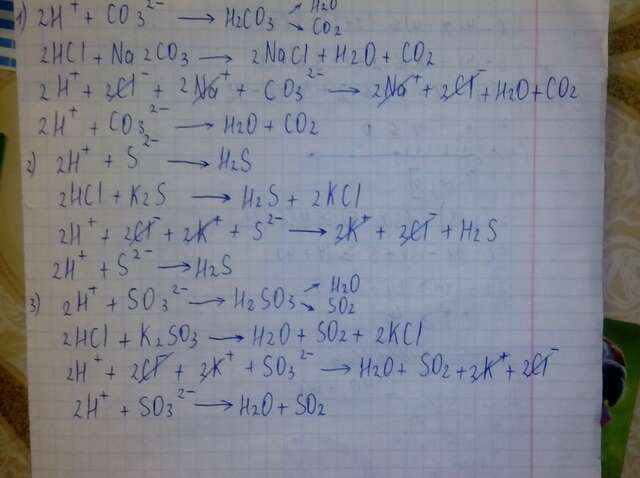 1) 2H⁺ + CO3²⁻ → H2CO3 → H2O → CO2
2HCl + Na2CO3 → 2NaCl + H2O + CO2
2H⁺ + 2Cl⁻ + 2Na⁺ + CO3²⁻ → 2Na⁺ + 2Cl⁻ + H2O + CO2
2H⁺ + CO3²⁻ → H2O + CO2
2) 2H⁺ + S²⁻ → H2S
2HCl + K2S → H2S + 2KCl
2H⁺ + 2Cl⁻ + 2K⁺ + S²⁻ → 2K⁺ + 2Cl⁻ + H2S
2H⁺ + S²⁻ → H2S
3) 2H⁺ + SO3²⁻ → H2SO3 → H2O → SO2
2HCl + K2SO3 → H2O + SO2 + 2KCl
2H⁺ + 2Cl⁻ + 2K⁺ + SO3²⁻ → H2O + SO2 + 2K⁺ + 2Cl⁻
2H⁺ + SO3²⁻ → H2O + SO2